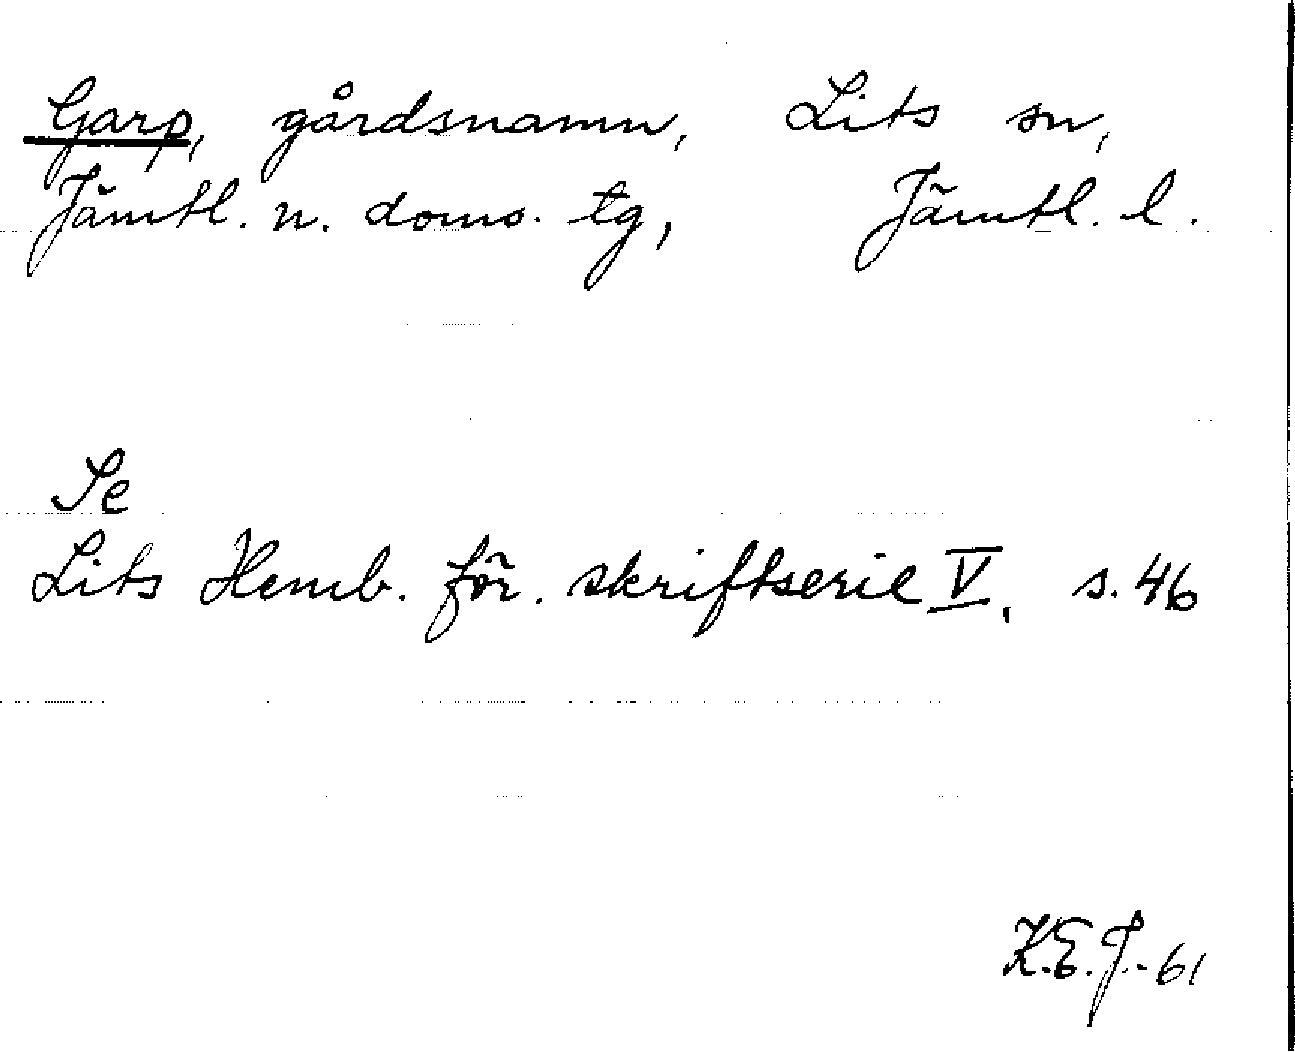 Garp, gårdsnamn, Lits sn,
Jämtl. n. doms. tg, Jämtl. l.
Se
Lits Hemb. för. skriftserie V, s. 46
K.E.J.-61